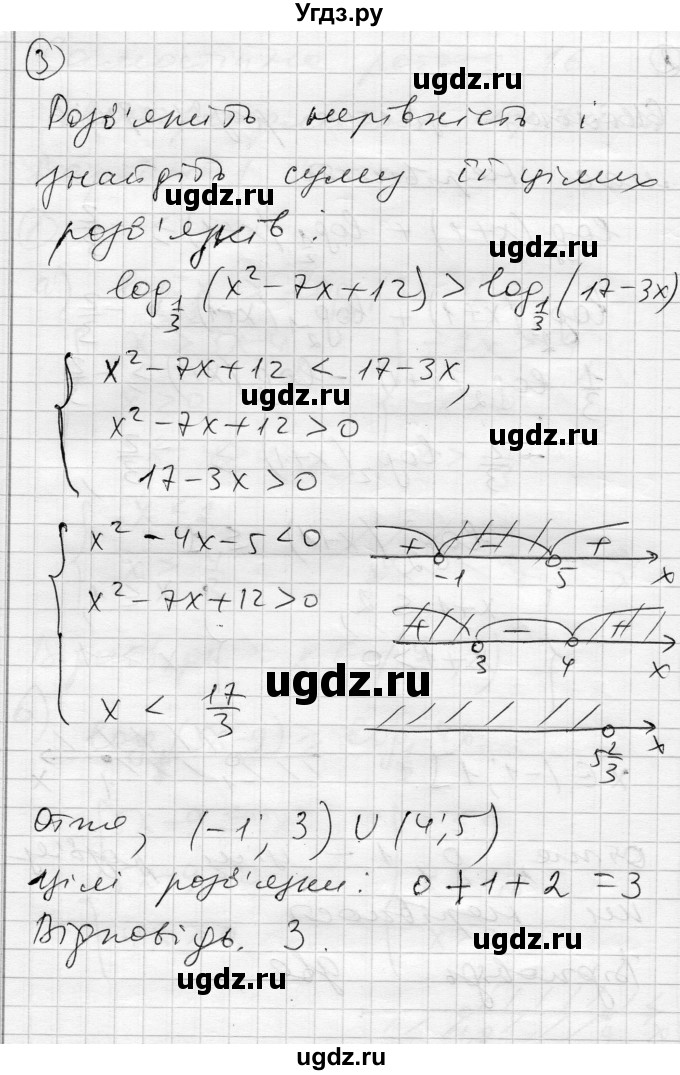 Угдз.ру
③
ugdz.ru
Розв'яжіть нерівність і
знайдіть суму її цілих
ugdz.ru
розв'язків:
ugdz.ru
log_{1/3} (x² - 7x + 12) > log_{1/3} (17 - 3x)
x² - 7x + 12 < 17 - 3x,
ugdz.ru
x² - 7x + 12 > 0
ugdz.ru
17 - 3x > 0
x² - 4x - 5 < 0
+ - +
-1 5 x
x² - 7x + 12 > 0
+ - +
3 4 x
ugdz.ru
x < 17/3
5 2/3 x
Отже, (-1; 3) ∪ (4; 5)
ugdz.ru
цілі розв'язки: 0 + 1 + 2 = 3
Відповідь. 3.
ugdz.ru
ugdz.ru